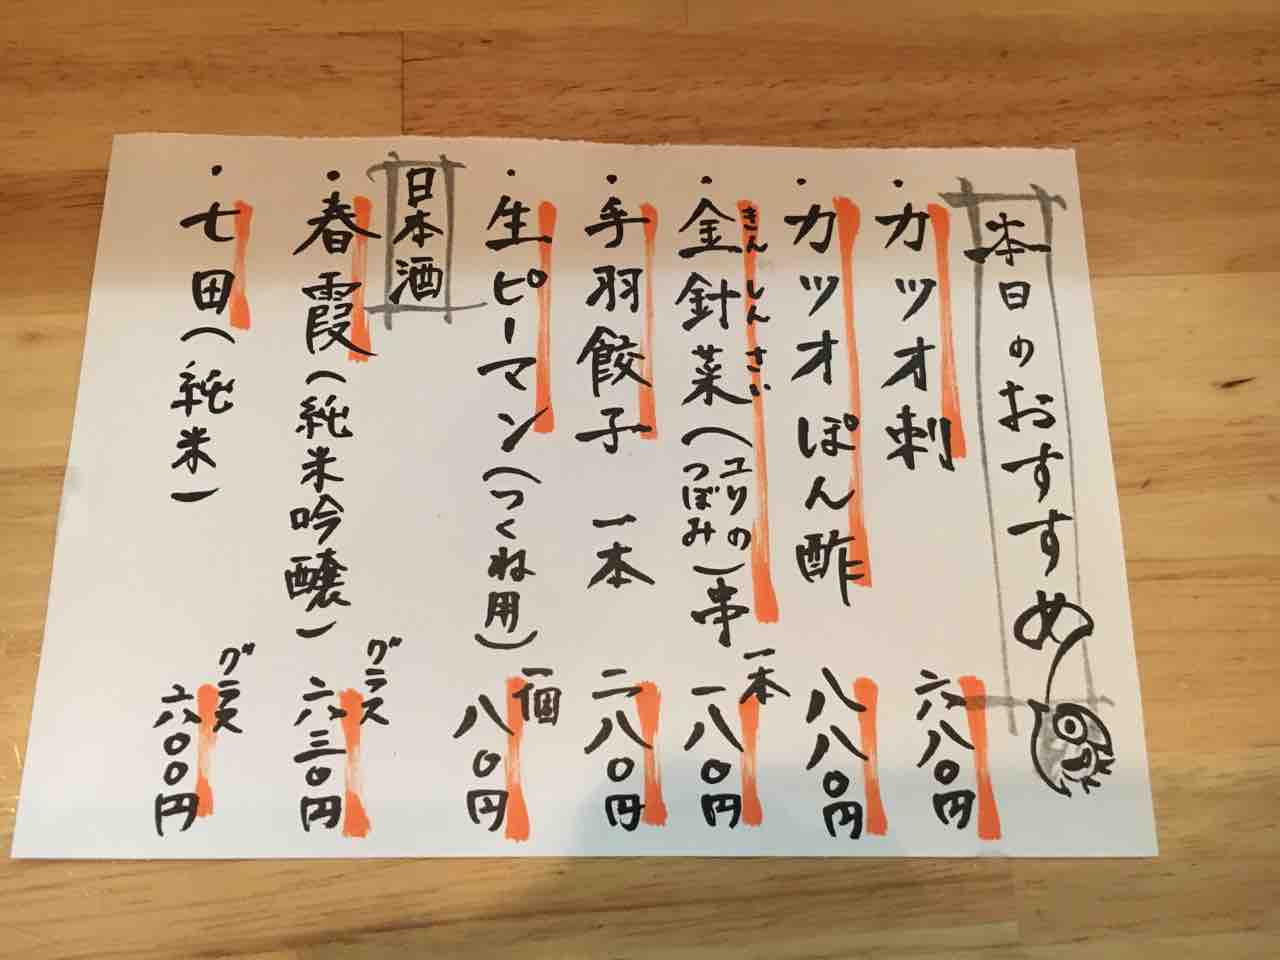 本日のおすすめ
・カツオ刺 六八〇円
・カツオぽん酢 八八〇円
・金針菜(ユリのつぼみ)串 一本 一八〇円
きんしんさい
・手羽餃子 一本 二八〇円
・生ピーマン(つくね用) 一個 八〇円
日本酒
・春霞(純米吟醸) グラス 六三〇円
・七田(純米) グラス 六〇〇円